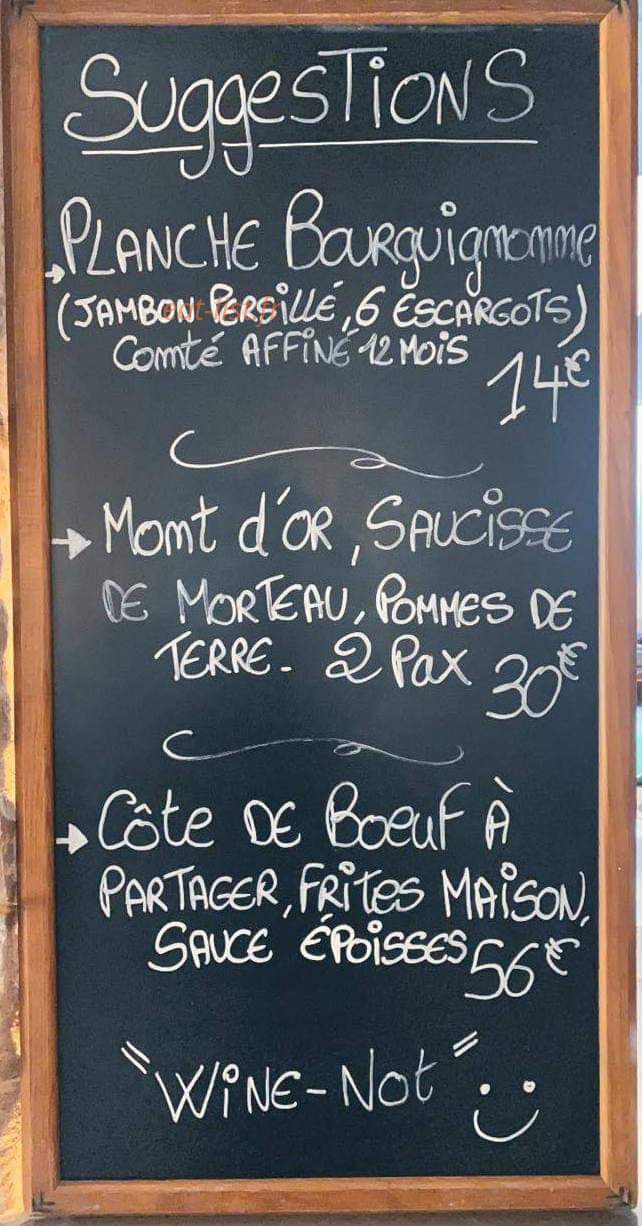 SuggesTioNS
PLANCHE Bourguignomme
(JAMBON PERSiLLÉ, 6 ESCARGOTS)
eat-list.fr
Comté AFFiNÉ 12 MOiS
14€
Momt d'OR, SAUCiSSE
DE MORTEAU, POMMES DE
TERRE. 2 Pax 30€
Côte DE Boeuf À
PARTAGER, FRites MAiSON,
SAUCE ÉPOiSSES 56€
"WiNE-Not"